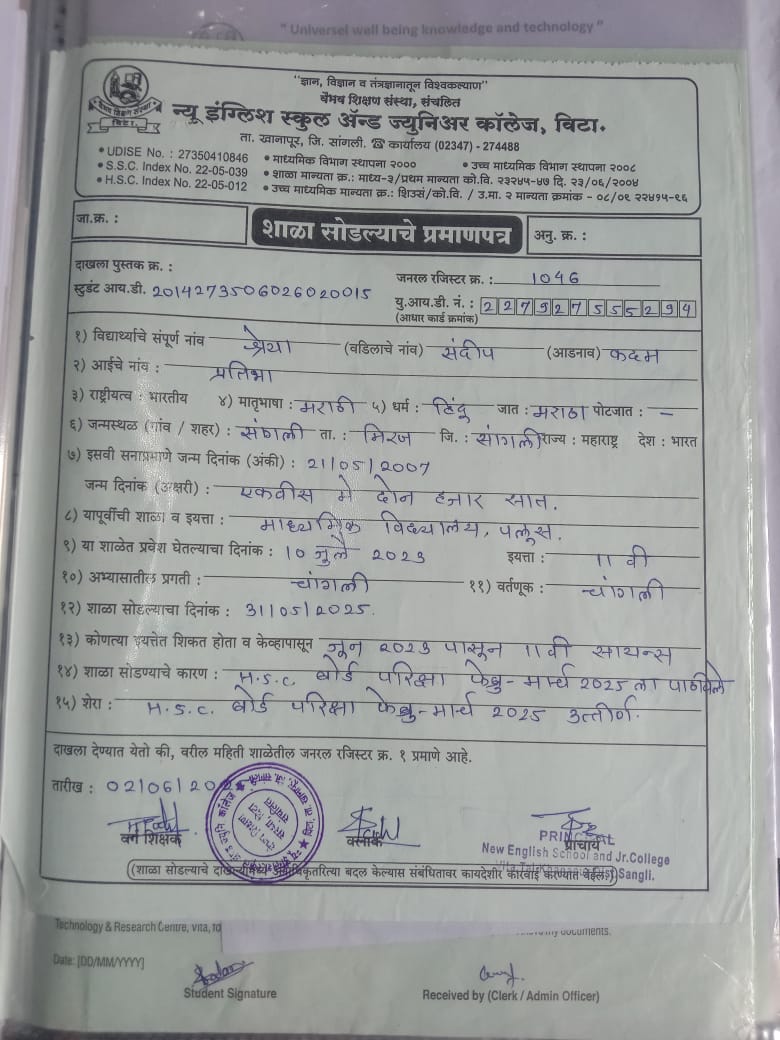 " Universel well being knowledge and technology "
"ज्ञान, विज्ञान व तंत्रज्ञानातून विश्वकल्याण"
वैभव शिक्षण संस्था, संचलित
न्यू इंग्लिश स्कुल ॲन्ड ज्युनिअर कॉलेज, विटा.
ता. खानापूर, जि. सांगली. ☎ कार्यालय (02347) - 274488
• UDISE No. : 27350410846 • माध्यमिक विभाग स्थापना २००० • उच्च माध्यमिक विभाग स्थापना २००८
• S.S.C. Index No. 22-05-039 • शाळा मान्यता क्र.: माध्य-३/प्रथम मान्यता को.वि. २३२४५-४७ दि. २३/०६/२००४
• H.S.C. Index No. 22-05-012 • उच्च माध्यमिक मान्यता क्र.: शिउसं/को.वि. / उ.मा. २ मान्यता क्रमांक - ०८/०९ २२४१५-१६
जा.क्र. : शाळा सोडल्याचे प्रमाणपत्र अनु. क्र. :
दाखला पुस्तक क्र. : जनरल रजिस्टर क्र. : 1046
स्टुडंट आय.डी. 2014273506026020015 यु.आय.डी. नं. : 227927555294
(आधार कार्ड क्रमांक)
१) विद्यार्थ्याचे संपूर्ण नांव श्रेया (वडिलाचे नांव) संदीप (आडनाव) कदम
२) आईचे नांव : प्रतिभा
३) राष्ट्रीयत्व : भारतीय ४) मातृभाषा : मराठी ५) धर्म : हिंदू जात : मराठा पोटजात : —
६) जन्मस्थळ (गांव / शहर) : संगली ता. : मिरज जि. : सांगली राज्य : महाराष्ट्र देश : भारत
७) इसवी सनाप्रमाणे जन्म दिनांक (अंकी) : 21/05/2007
जन्म दिनांक (अक्षरी) : एकवीस मे दोन हजार सात.
८) यापूर्वीची शाळा व इयत्ता : माध्यमिक विद्यालय, पलूस.
९) या शाळेत प्रवेश घेतल्याचा दिनांक : 10 जुलै 2023 इयत्ता : 11 वी
१०) अभ्यासातील प्रगती : चांगली ११) वर्तणूक : चांगली
१२) शाळा सोडल्याचा दिनांक : 31/05/2025.
१३) कोणत्या इयत्तेत शिकत होता व केव्हापासून जून 2023 पासून 11 वी सायन्स
१४) शाळा सोडण्याचे कारण : H.S.C. बोर्ड परिक्षा फेब्रु-मार्च 2025 ला पाठविले
१५) शेरा : H.S.C. बोर्ड परिक्षा फेब्रु-मार्च 2025 उत्तीर्ण.
दाखला देण्यात येतो की, वरील माहिती शाळेतील जनरल रजिस्टर क्र. १ प्रमाणे आहे.
तारीख : 02/06/20
वर्ग शिक्षक क्लार्क प्राचार्य
PRINCIPAL
New English School and Jr.College
Sangli.
(शाळा सोडल्याचे दाखल्यामध्ये अनधिकृतरित्या बदल केल्यास संबंधितावर कायदेशीर कारवाई करण्यात येईल.)
Technology & Research Centre, Vita, documents.
Date: [DD/MM/YYYY]
Student Signature Received by (Clerk / Admin Officer)